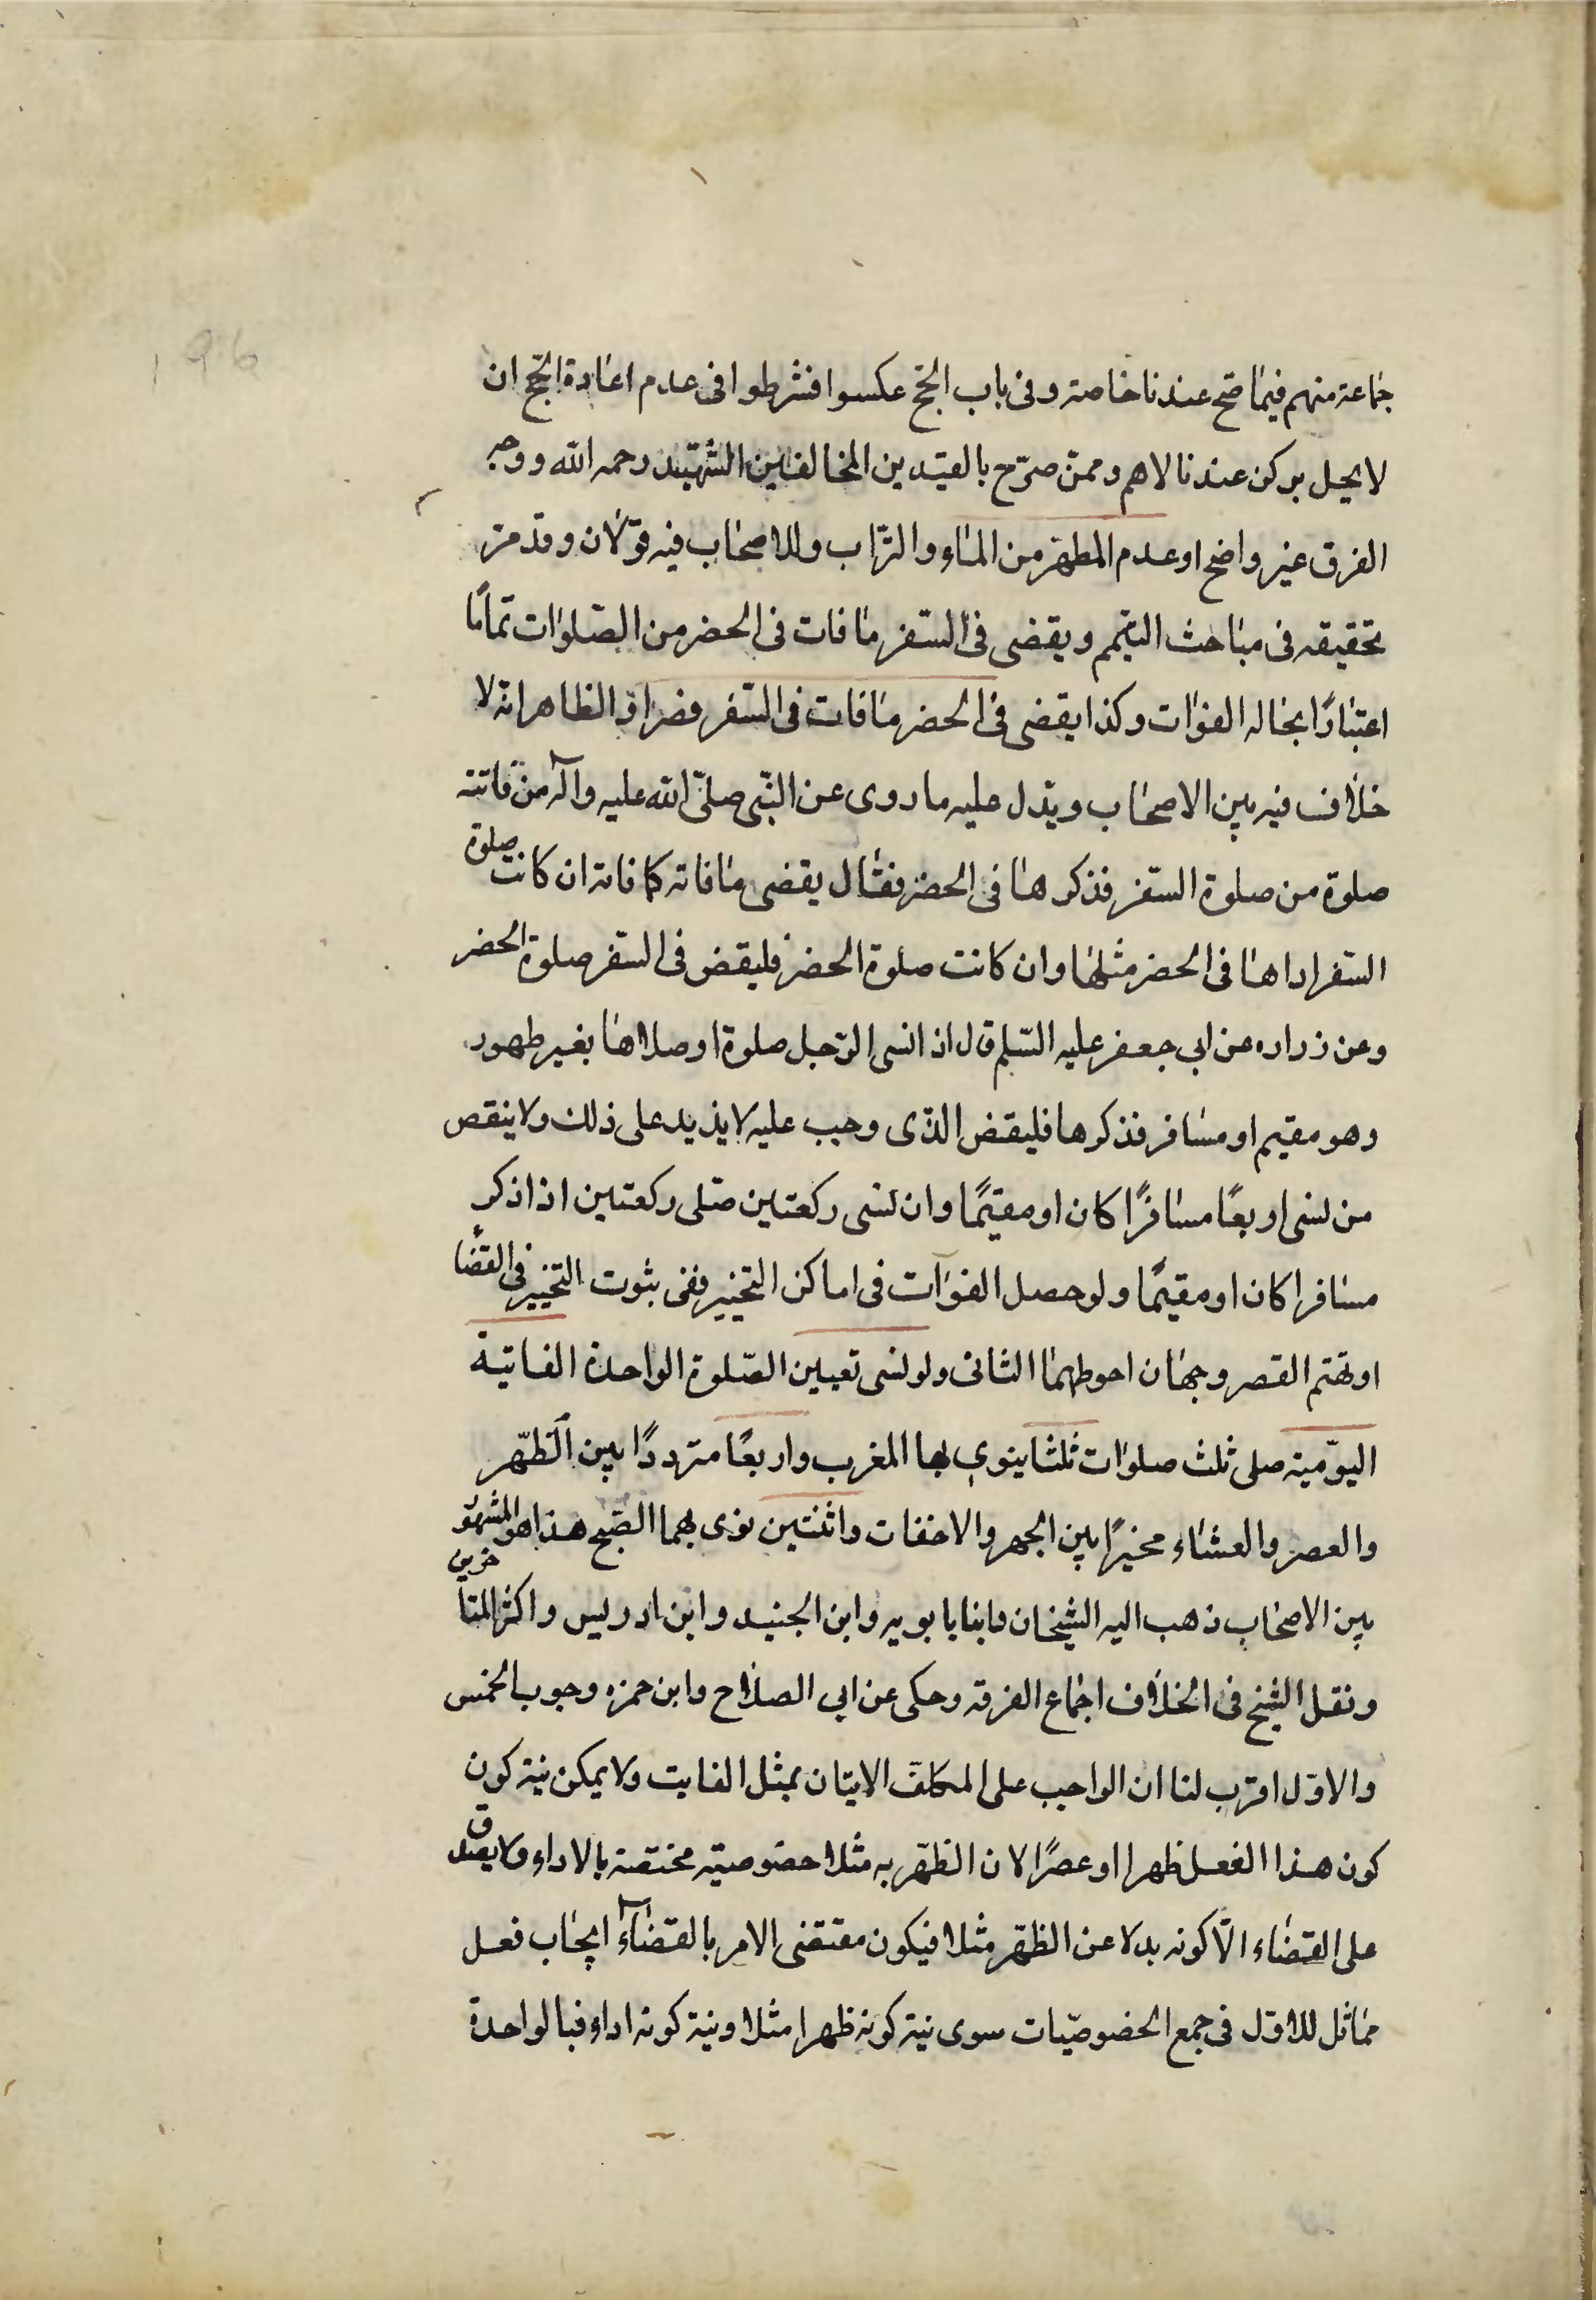 196
جماعة منهم فيما صح عندنا خاصة وفى باب الحج عكسوا فشرطوا فى عدم اعادة الحج ان
لا يخل بركن عندنا لا هم وممن صرّح بالقيدين المخالفين الشهيد رحمه الله ووجه
الفرق غير واضح او عدم المطهر من الماء والتراب وللاصحاب فيه قولان وقد مرّ
تحقيقه فى مباحث التيمم ويقضى فى السفر ما فات فى الحضر من الصلوات تماماً
اعتباراً بحاله الفوات وكذا يقضى فى الحضر ما فات فى السفر قصرا والظاهر انه لا
خلاف فيه بين الاصحاب ويدل عليه ما روى عن النبى صلّى الله عليه وآله من فاتته
صلوة من صلوة السفر فذكرها فى الحضر فقال يقضى ما فاته كما فاته ان كانت صلوة
السفر اداها فى الحضر مثلها وان كانت صلوة الحضر فليقض فى السفر صلوة الحضر
وعن زراره عن ابى جعفر عليه السّلم قال اذا نسى الرّجل صلوة او صلاها بغير طهور
وهو مقيم او مسافر فذكرها فليقض الذى وجب عليه لا يزيد على ذلك ولا ينقص
من نسى اربعاً مسافراً كان او مقيماً وان نسى ركعتين صلى ركعتين اذا ذكر
مسافرا كان او مقيماً ولو حصل الفوات فى اماكن التخيير ففى ثبوت التخيير فى القضاء
او تحتم القصر وجهان احوطهما الثانى ولو نسى تعيين الصّلوة الواحدة الفايتة
اليوميّة صلى ثلث صلوات ثلثا ينوى بها المغرب واربعاً مترددًا بين الظهر
والعصر والعشاء مخيراً بين الجهر والاخفات واثنتين نوى بهما الصبح هذا هو المشهور
بين الاصحاب ذهب اليه الشيخان وابنا بابويه وابن الجنيد وابن ادريس واكثر المتاخرين
ونقل الشيخ فى الخلاف اجماع الفرقه وحكى عن ابى الصلاح وابن حمزه وجوب الخمس
والاوّل اقرب لنا ان الواجب على المكلف الاتيان بمثل الفايت ولا يمكن نية كون
كون هذا الفعل ظهرا او عصرًا لان الظهريه مثلا خصوصيّة مختصة بالاداء ولا يصدق
على القضاء الّا كونه بدلا عن الظهر مثلا فيكون مقتضى الامر بالقضاء ايجاب فعل
مماثل للاوّل فى جمع الخصوصيّات سوى نية كونه ظهرا مثلا ونية كونه اداء فبالواحدة